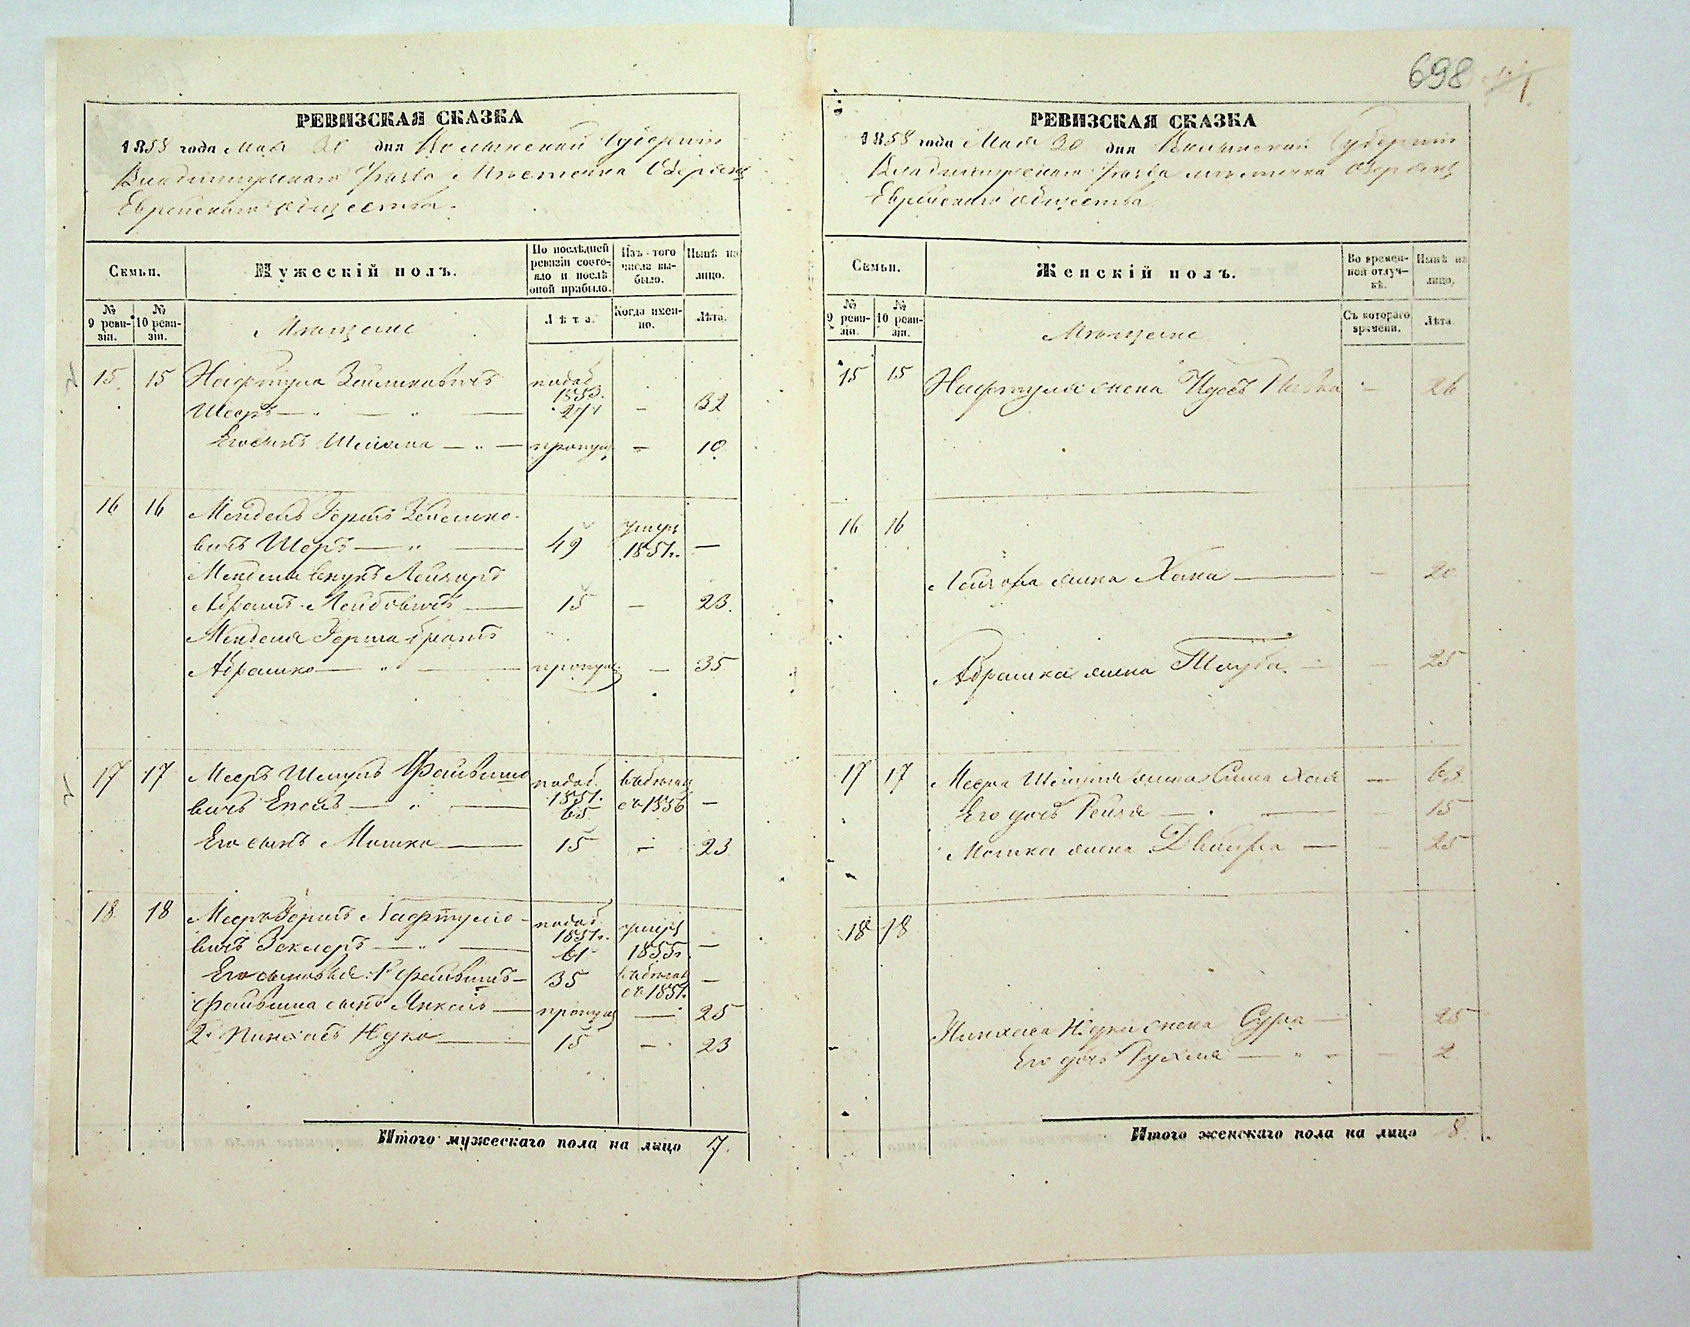 698
РЕВИЗСКАЯ СКАЗКА
1858 года Мая 20 дня Волынской Губернии
Владимирскаго уезда Местечка Озеряны
Еврейскаго общества.
Семьи.
Мужескій полъ.
По послѣдней ревизіи состояло и послѣ оной прибыло.
Изъ того числа выбыло.
Нынѣ на лицо.
№ 9 ревизіи.
№ 10 ревизіи.
Мѣщане
Лѣта.
Когда именно.
Лѣта.
15 15 Нафтула Зейликовичъ
1853.
Шеръ — „ — 27 — 32
Его сынъ Шлиома — „ — пропущ. — 10
16 16 Мендель Гершъ Зейлико-
вичъ Шеръ — „ — 49 1857. —
Менделя внукъ Лейзоръ
Абрамъ Лейбовичъ — 15 — 23.
Менделя Герша братъ
Абрашко — „ — пропущ. — 35
17 17 Мееръ Шмуль Файвиш
вичъ — „ — 1851. 65 1856 —
Его сынъ Мошко — 15 — 23
18 18 Мееръ Гершъ Нафтулио-
вичъ — „ — 1851. 61 1855. —
Его сыновья: 1 Файвишъ — 35 1857. —
Файвиша сынъ Янкель — пропущ. — 25
2. Пинхасъ Нута — 15 — 23
Итого мужескаго пола на лицо 7.
РЕВИЗСКАЯ СКАЗКА
1858 года Мая 20 дня Волынской Губернии
Владимирскаго уезда местечка Озеряны
Еврейскаго общества
Семьи.
Женскій полъ.
Во временной отлучкѣ.
Нынѣ на лицо.
№ 9 ревизіи.
№ 10 ревизіи.
Мѣщане
Съ котораго времени.
Лѣта.
15 15 Нафтули жена — 26
16 16
Лейзора жена Хана — — 20
Абрашка жена Тауба — — 25
17 17 Меера Шмуля жена Хая — 63
Его дочь Рейзя — 15
Мошка жена Двойра — — 25
18 18
Пинхаса Нуты жена Сура — 25
Его дочь Рухля — „ — 2
Итого женскаго пола на лицо 8.